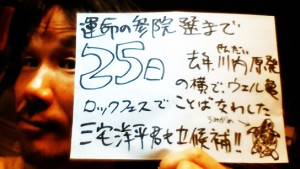 運命の参院選まで
25日
せんだい
去年川内原発
の横で、ウェル亀
ロックフェスでことばかわした
うみがめ
三宅洋平君も立候補!!